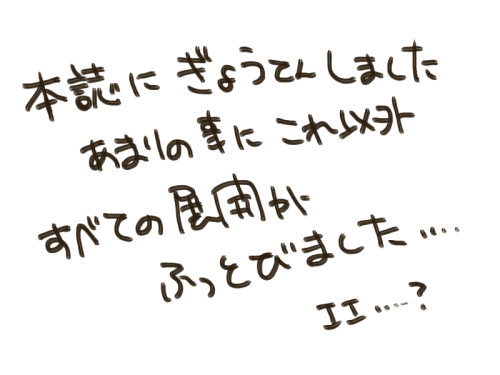 本誌に ぎょうてんしました
あまりの事に これ以外
すべての展開が
ふっとびました‥‥
エエ‥‥?